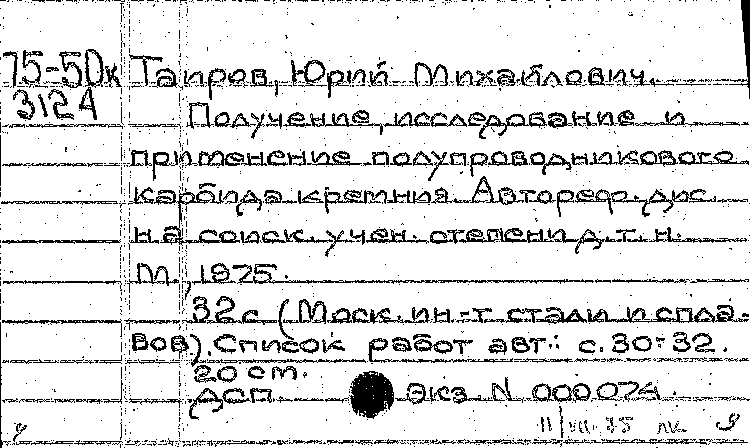 75-50к Таиров, Юрий Михайлович.
3124
Получение, исследование и
применение полупроводникового
карбида кремния. Автореф. дис.
на соиск. учен. степени д. т. н.
М., 1975.
32с (Моск. ин-т стали и спла-
вов). Список работ авт.: с. 30-32.
20 см.
ДСП. Экз N 000074.